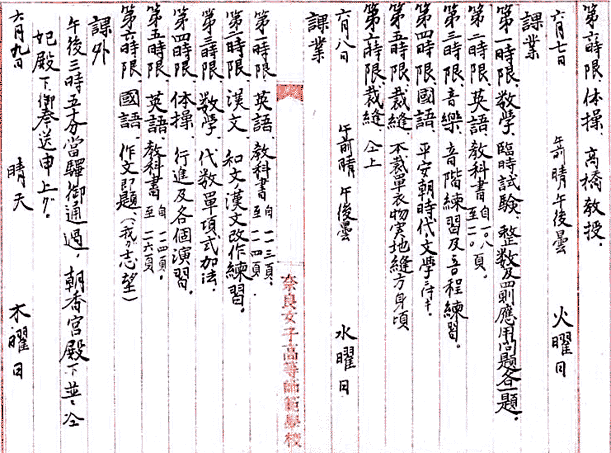 第六時限、体操、高橋教授。
六月七日 午前晴午後曇 火曜日
課業
第一時限、数学、臨時試験、整数及四則応用問題各一題。
第二時限、英語、教科書自一八頁至二〇頁。
第三時限、音楽、音階練習及音程練習。
第四時限、國語、平安朝時代、文学ニ付キ。
第五時限、裁縫、本裁單衣物実地縫方身頃
第六時限、裁縫、仝上
六月八日 午前晴午後曇 水曜日
課業
第一時限、英語、教科書自一二三頁、至一二四頁。
第二時限、漢文、知文、漢文改作練習。
第三時限、数学、代数單項式加法。
第四時限、体操、行進及各個演習。
第五時限、英語、教科書自二四頁、至二六頁。
第六時限、國語、作文即題、(我が志望)
課外
午後三時五十分當驛御通過、朝香宮殿下並ニ仝
妃殿下御奉送申上グ。
六月九日 晴天 木曜日
奈良女子高等師範學校